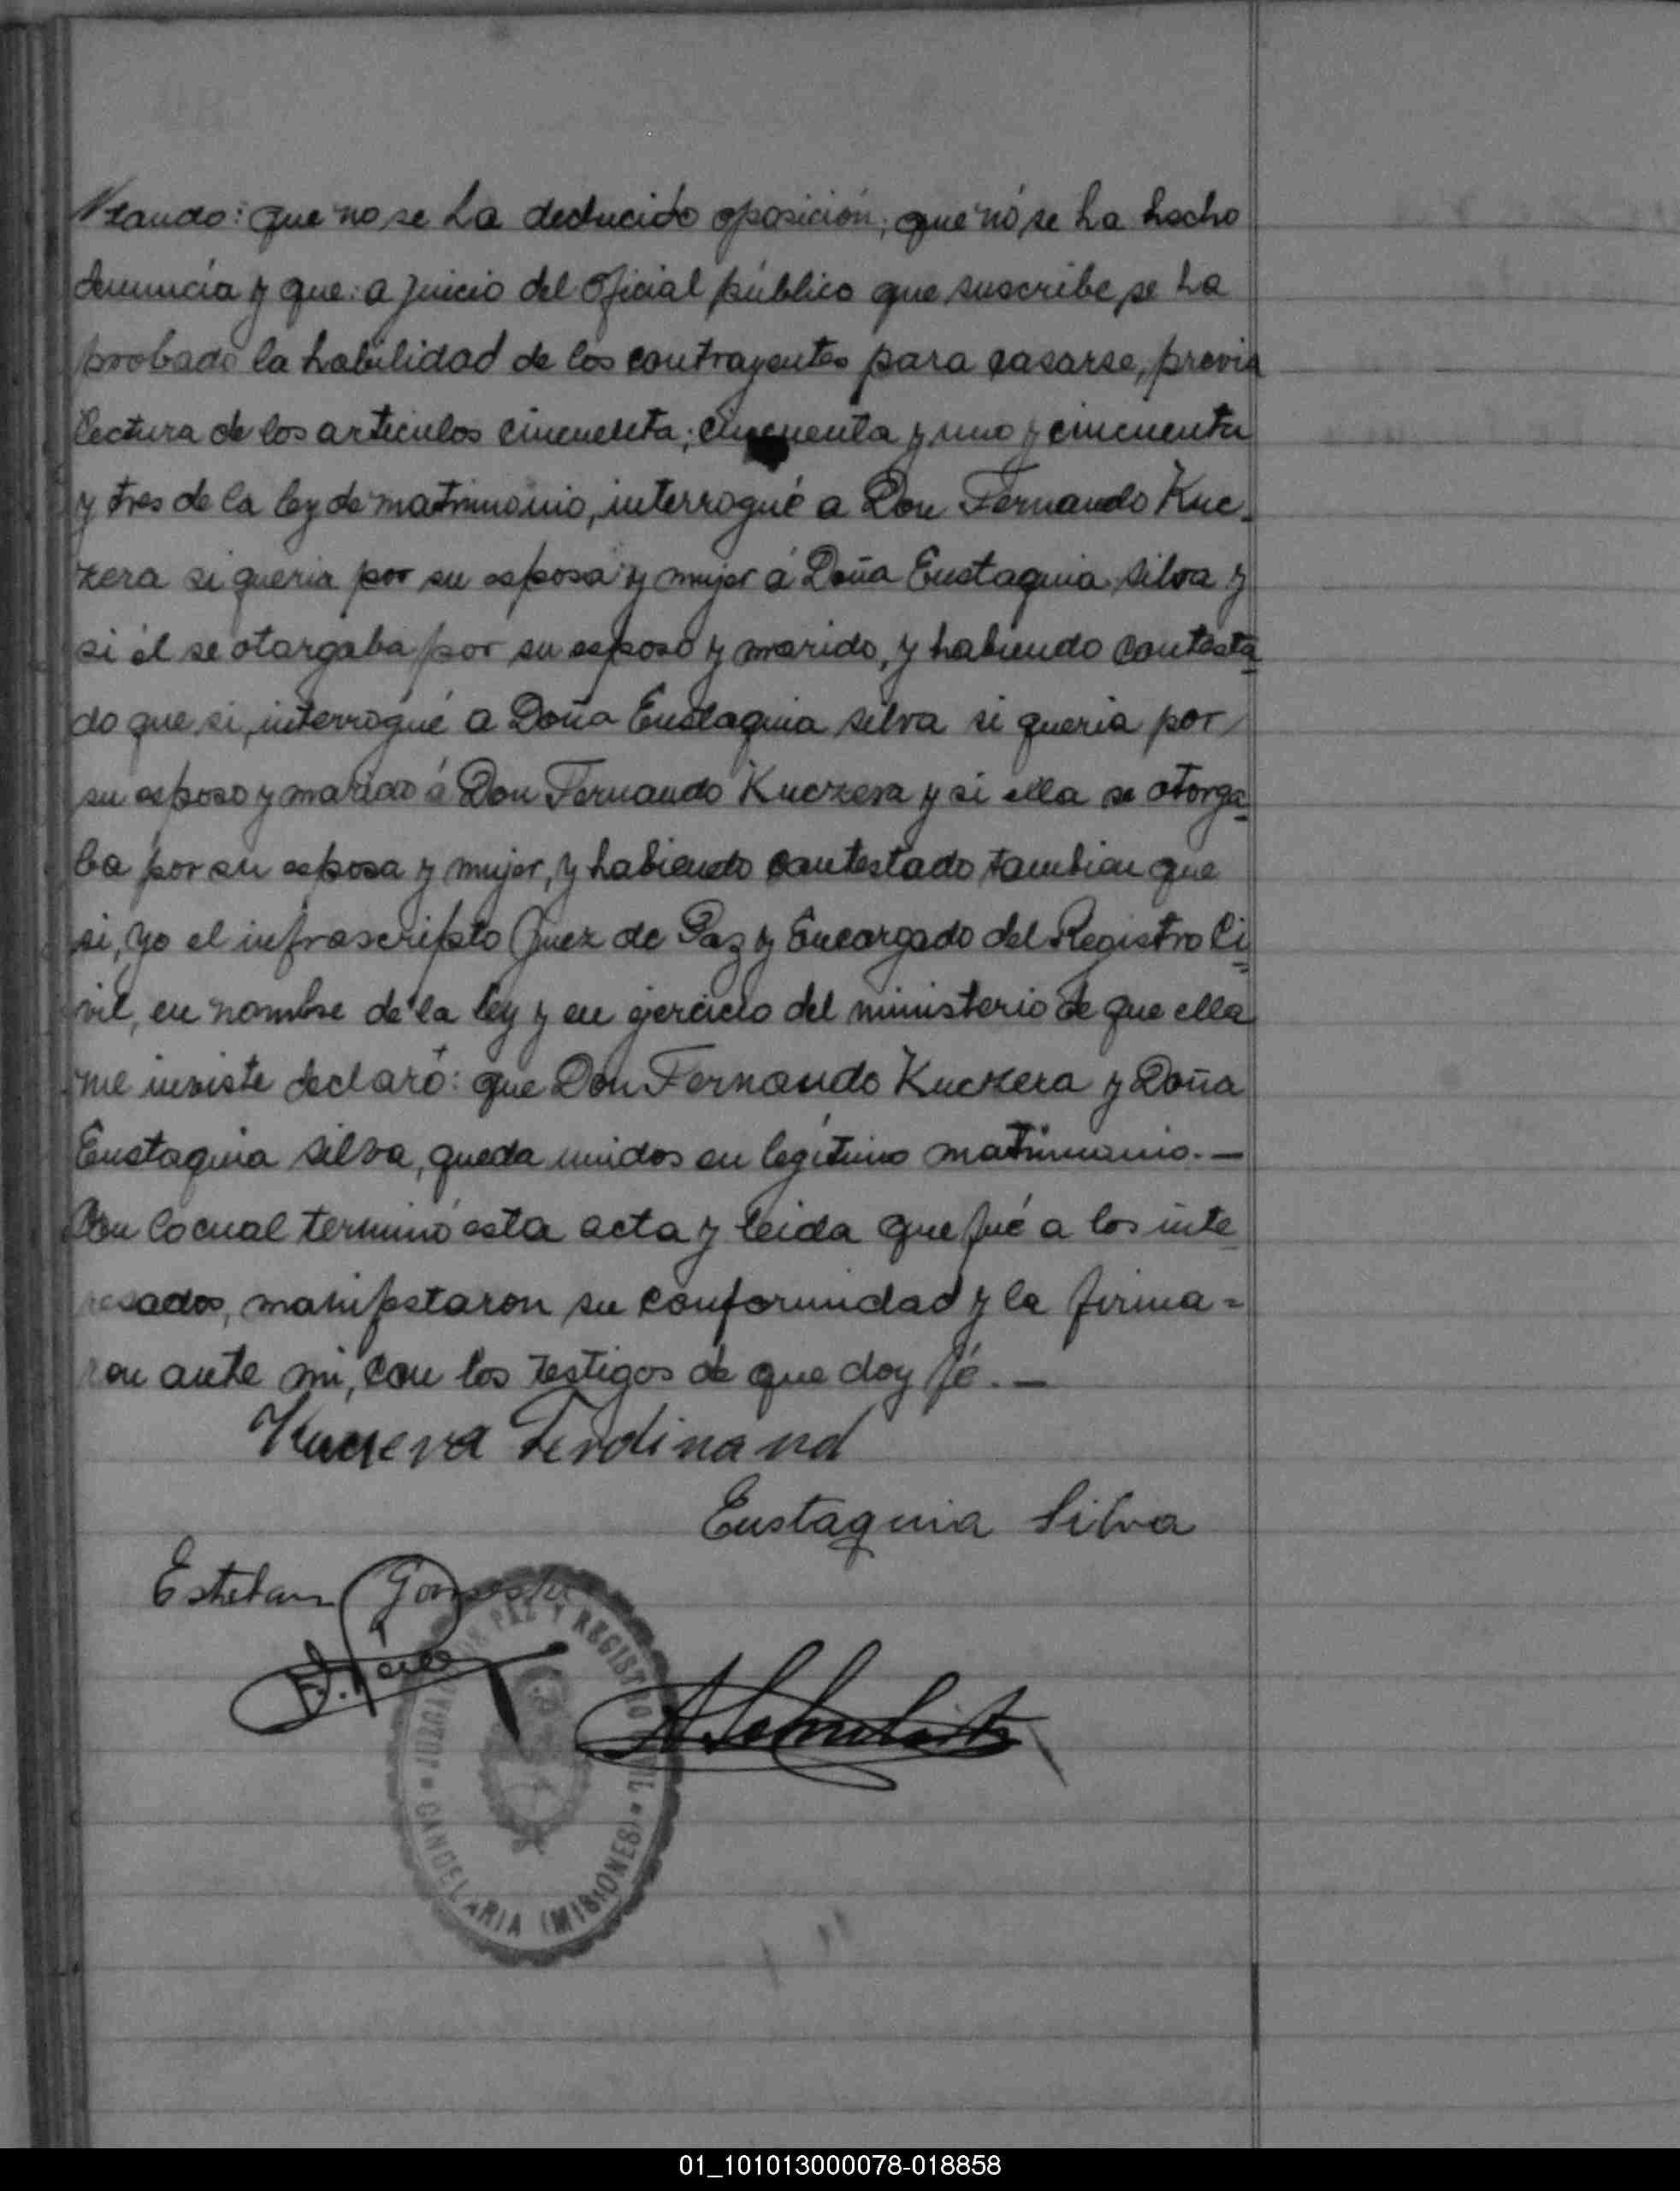 stando: que no se ha deducido oposición; que nó se ha hecho
denuncia y que: a juicio del oficial público que suscribe se ha
probado la habilidad de los contrayentes para casarse, previa
lectura de los articulos cincuenta; cincuenta y uno y cincuenta
y tres de la ley de matrimonio, interrogué a Don Fernando Kuc-
zera si queria por su esposa y mujer á Doña Eustaquia Silva y
si él se otorgaba por su esposo y marido, y habiendo contesta-
do que si, interrogué a Doña Eustaquia Silva si queria por
su esposo y marido á Don Fernando Kuczera y si ella se otorga-
ba por su esposa y mujer, y habiendo contestado tambien que
si, yo el infrascripto Juez de Paz y Encargado del Registro Ci=
vil, en nombre de la ley y en ejercicio del ministerio de que ella
me inviste declaró: que Don Fernando Kuczera y Doña
Eustaquia Silva, queda unidos en legítimo matrimonio.—
Con lo cual terminó esta acta y leida que fué a los inte-
resados, manifestaron su conformidad y la firma=
ron ante mi, con los testigos de que doy fé.—
Kuczera Ferdinand
Eustaquia Silva
Esteban
JUZGADO DE PAZ Y REGISTRO CIVIL
CANDELARIA (MISIONES)
01_101013000078-018858